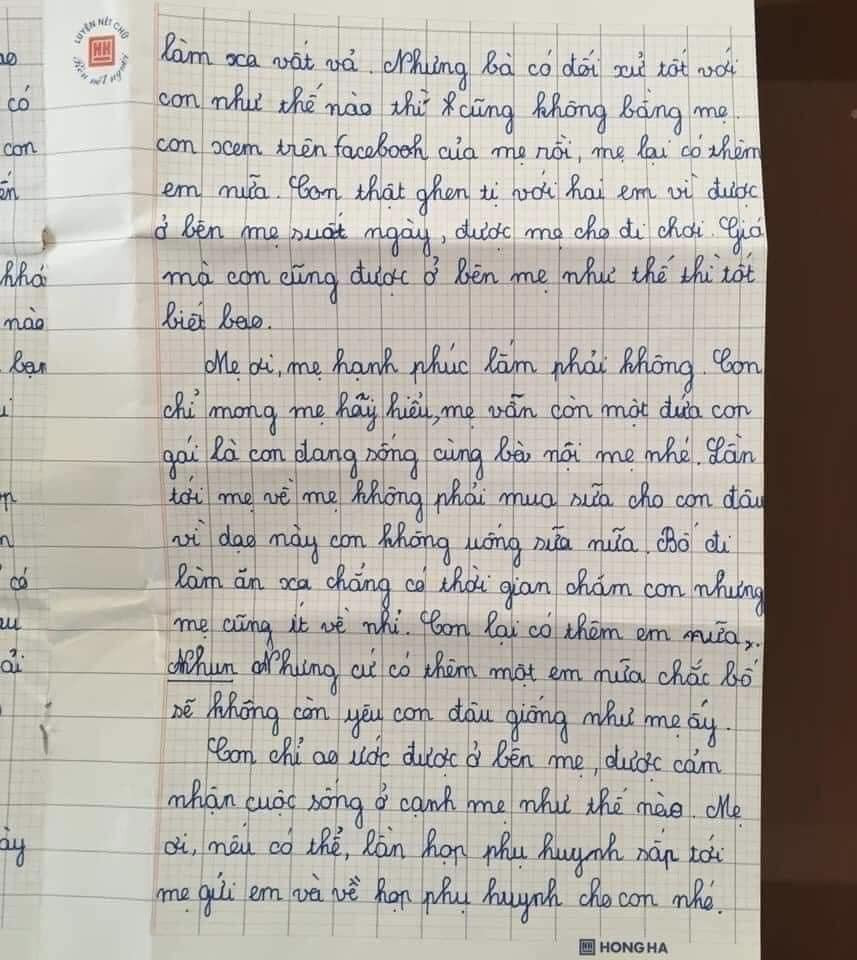 LUYỆN NÉT CHỮ
Rèn nết người
làm xa vất vả. Nhưng bà có đối xử tốt với
con như thế nào thì cũng không bằng mẹ.
con xem trên facebook của mẹ rồi, mẹ lại có thêm
em nữa. Con thật ghen tị với hai em vì được
ở bên mẹ suốt ngày, được mẹ cho đi chơi. Giá
mà con cũng được ở bên mẹ như thế thì tốt
biết bao.
Mẹ ơi, mẹ hạnh phúc lắm phải không. Con
chỉ mong mẹ hãy hiểu, mẹ vẫn còn một đứa con
gái là con đang sống cùng bà nội mẹ nhé. Lần
tới mẹ về mẹ không phải mua sữa cho con đâu
vì dạo này con không uống sữa nữa. Bố đi
làm ăn xa chẳng có thời gian chăm con nhưng
mẹ cũng ít về nhỉ. Con lại có thêm em nữa,.
Nhun Nhưng cứ có thêm một em nữa chắc bố
sẽ không còn yêu con đâu giống như mẹ ấy.
Con chỉ ao ước được ở bên mẹ, được cảm
nhận cuộc sống ở cạnh mẹ như thế nào. Mẹ
ơi, nếu có thể, lần họp phụ huynh sắp tới
mẹ gửi em và về họp phụ huynh cho con nhé.
HONG HA
có
con
khá
nào
bạn
có
ải
ày